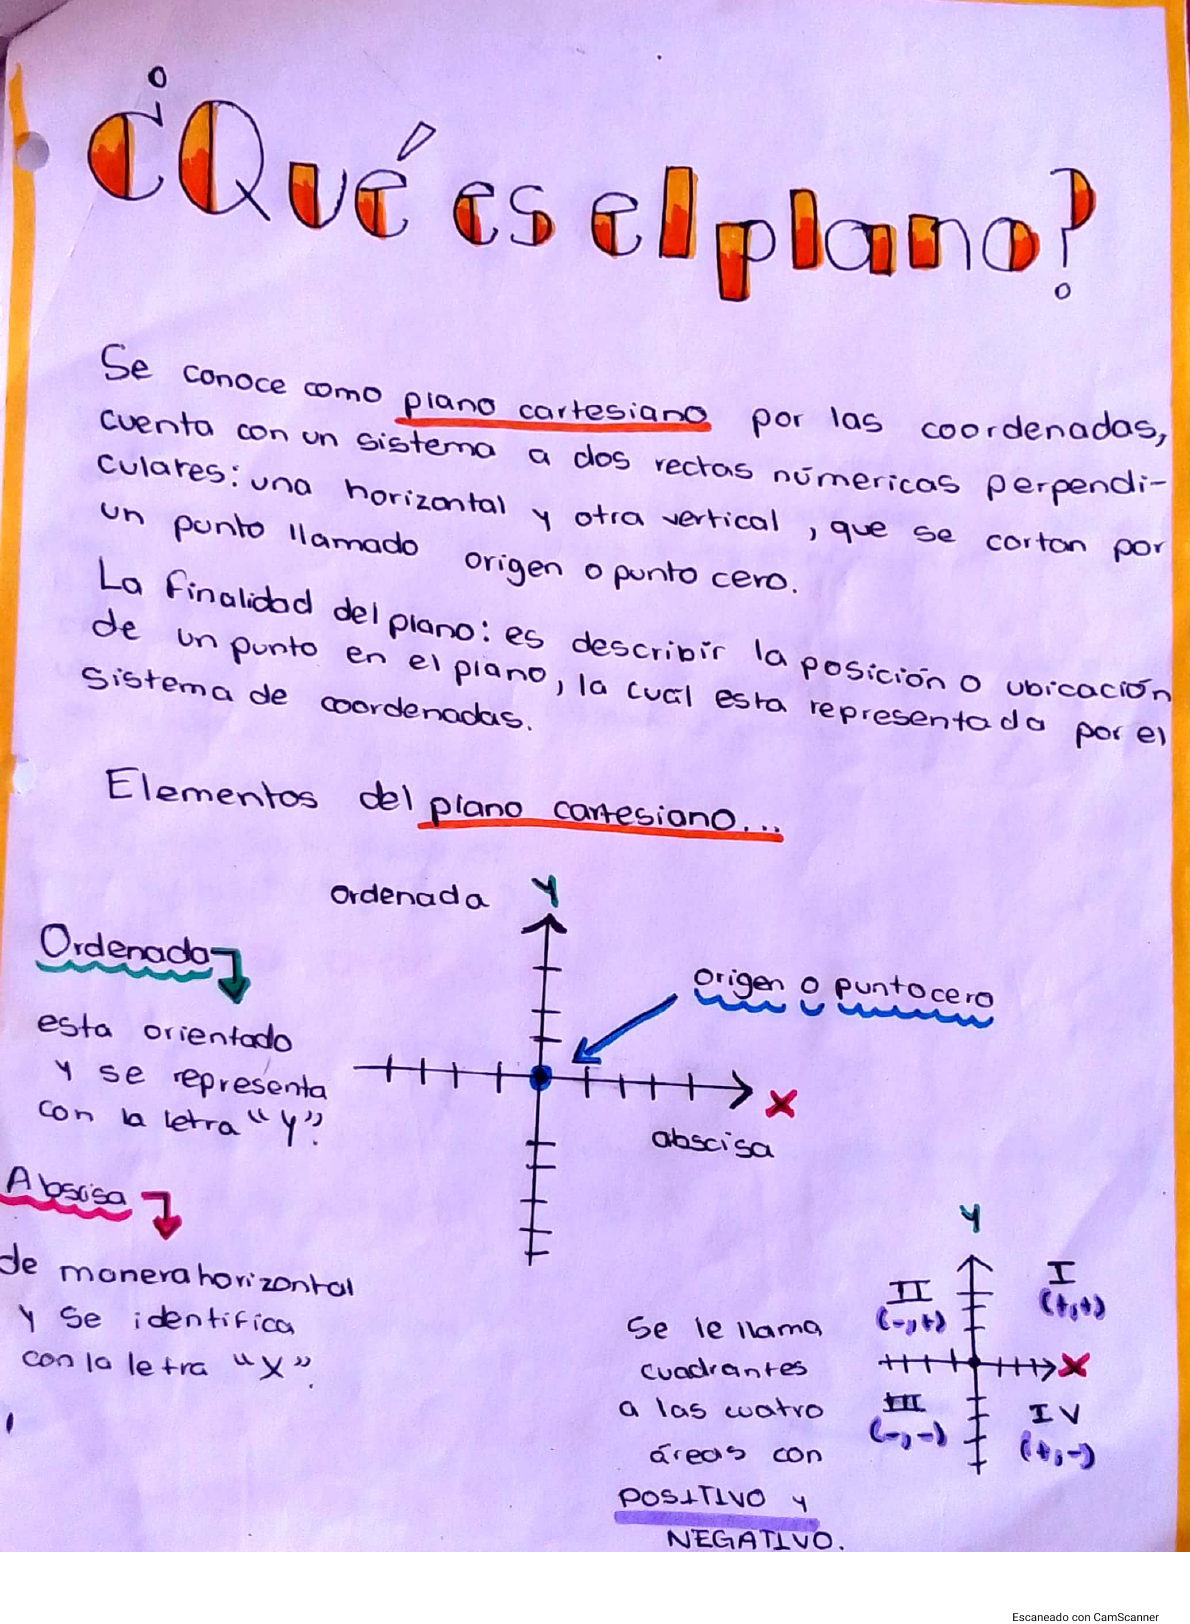 ¿Qué es el plano?
Se conoce como plano cartesiano por las coordenadas,
cuenta con un sistema a dos rectas númericas perpendi-
culares: una horizontal y otra vertical, que se cortan por
un punto llamado origen o punto cero.
La finalidad del plano: es describir la posición o ubicación
de un punto en el plano, la cual esta representada por el
sistema de coordenadas.
Elementos del plano cartesiano...
Ordenada Y
Ordenada
origen o punto cero
esta orientado
y se representa
con la letra "Y".
X
abscisa
Abscisa
de manera horizontal
y se identifica
con la letra "X".
Y
II
(-,+)
I
(+,+)
X
III
(-,-)
IV
(+,-)
Se le llama
cuadrantes
a las cuatro
áreas con
POSITIVO y
NEGATIVO.
Escaneado con CamScanner